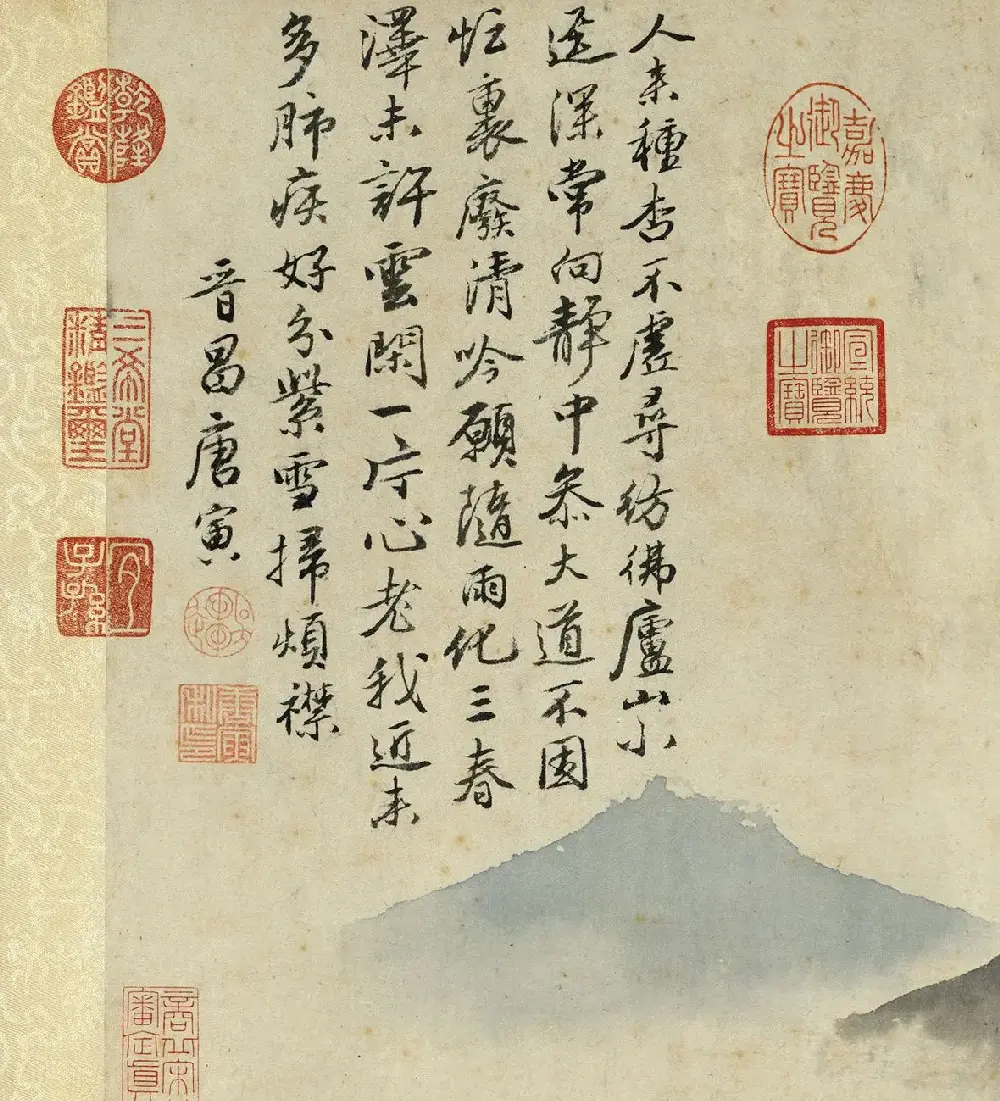 嘉慶御覽之寶
宣統御覽之寶
人来種杏不虛尋彷彿廬山小
逕深常向靜中參大道不因
忙裏廢清吟願隨雨化三春
澤未許雲閑一片心老我近来
多肺疾好分紫雪掃煩襟
晉昌唐寅
乾隆鑑賞
三希堂精鑑璽
宜子孫
商丘宋
審定真